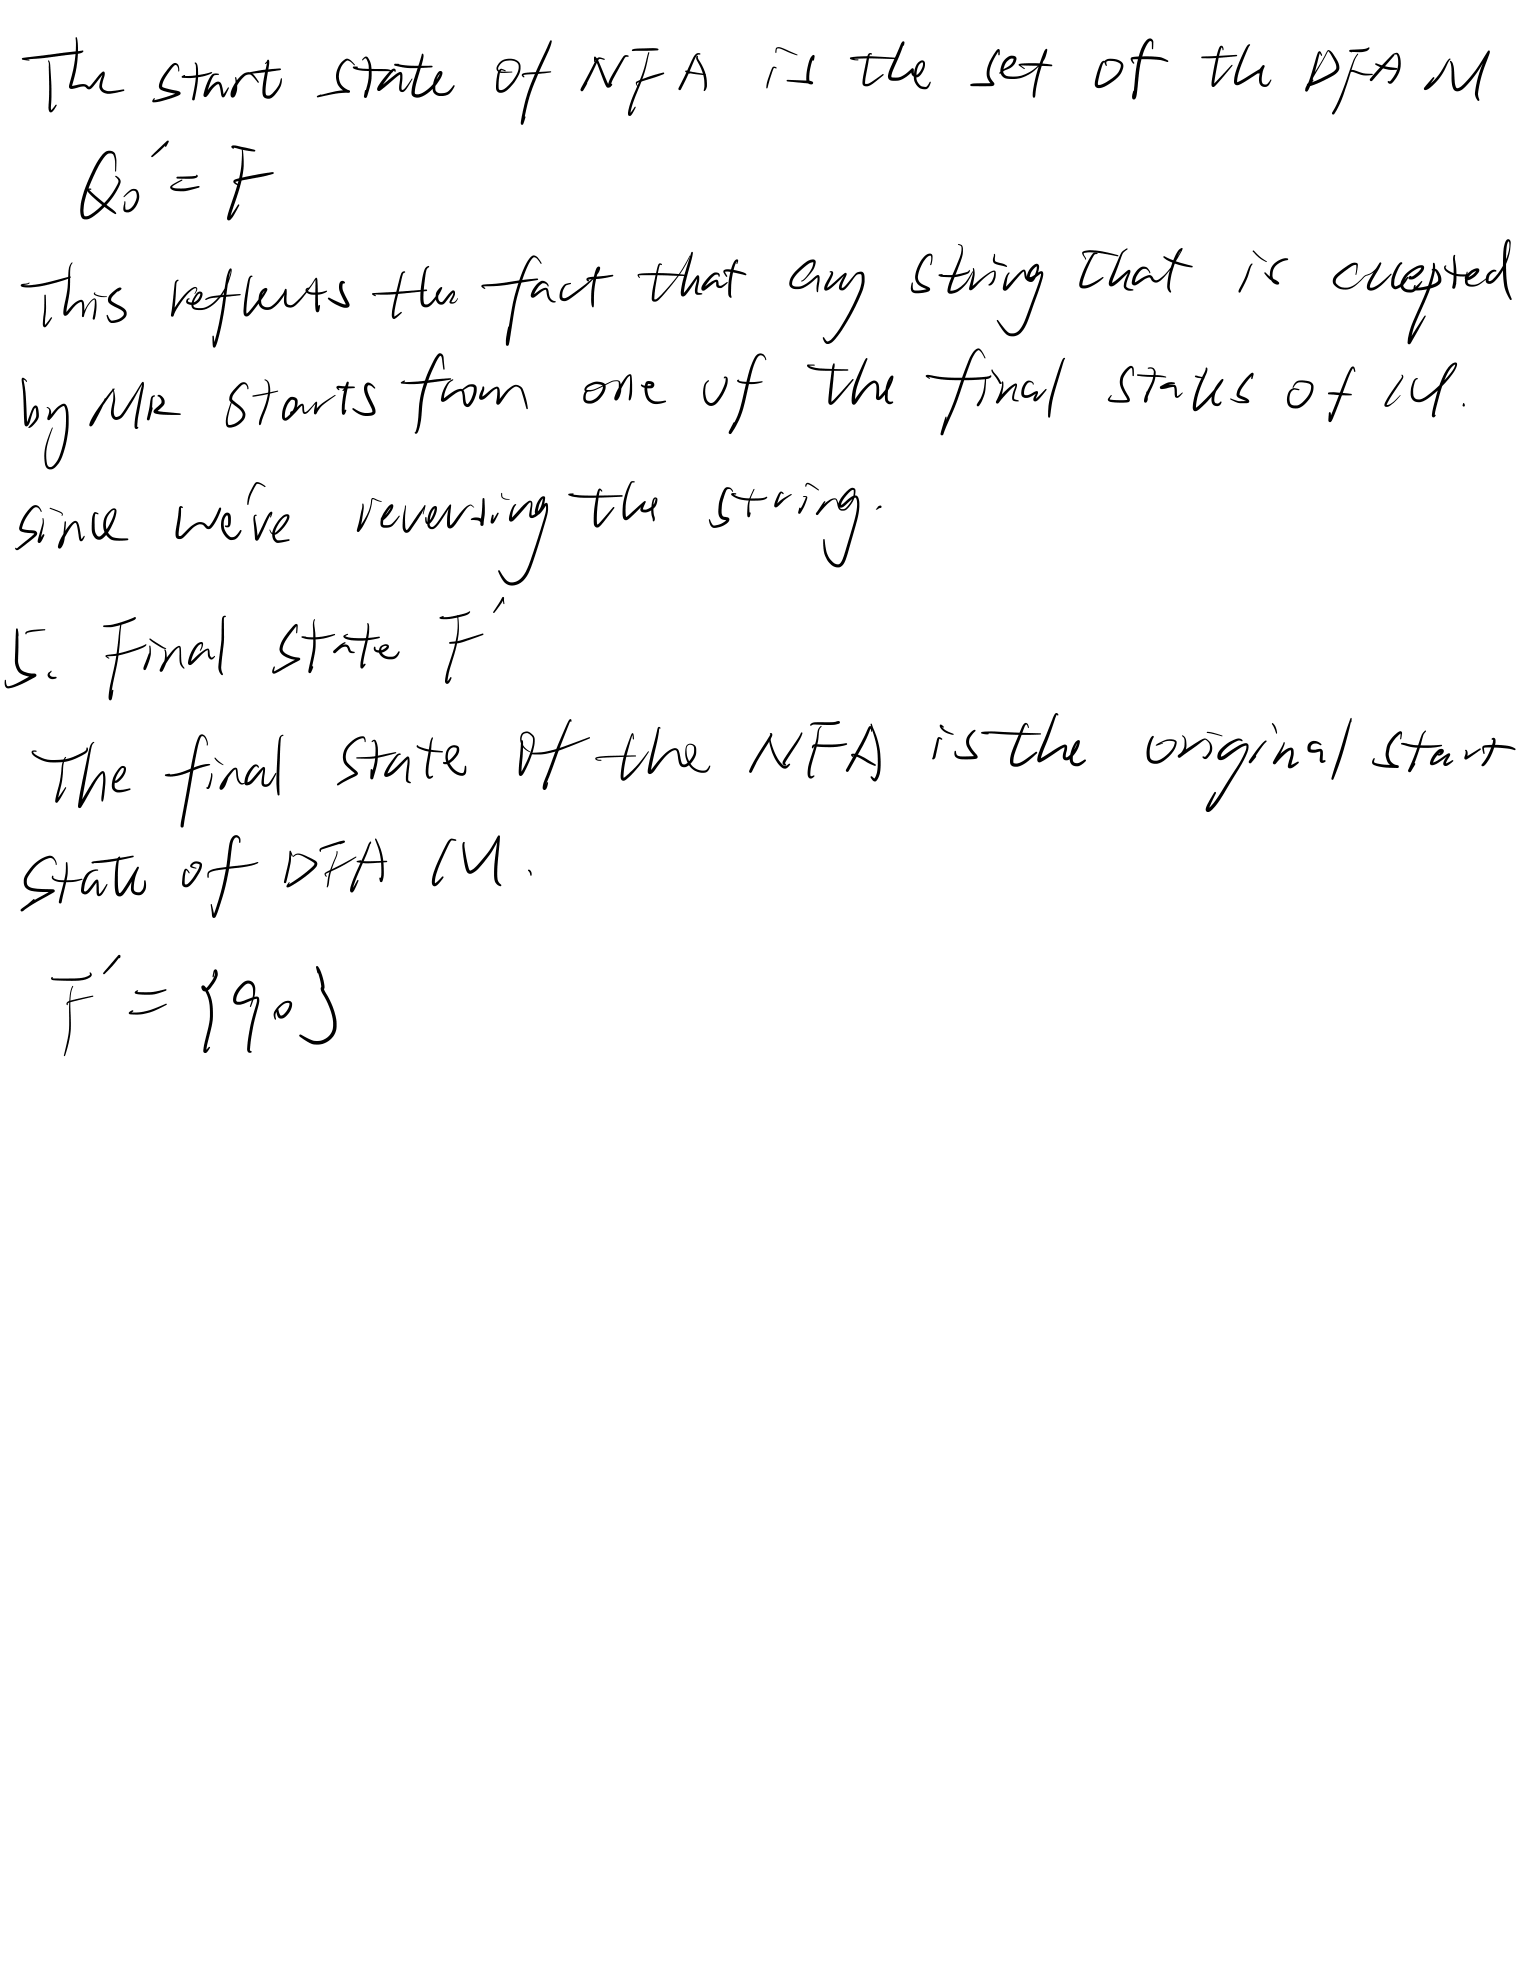 The start state of NFA is the set of the DFA M
Q₀′ = F
This reflects the fact that any string that is accepted
by MR starts from one of the final states of M.
since we're reversing the string.
5. Final state F′
The final state of the NFA is the original start
state of DFA M.
F′ = {q₀}